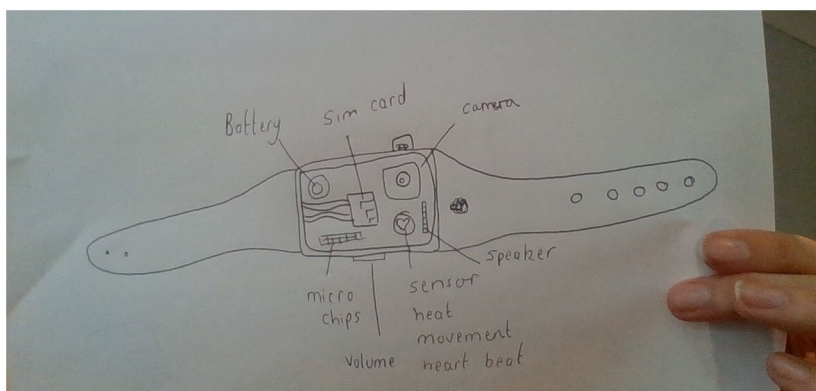 Battery
Sim card
camera
speaker
micro
chips
volume
sensor
heat
movement
heart beat